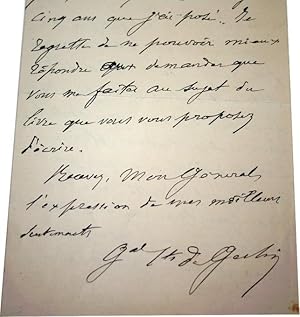 Cinq ans que j'ai posé. Je
regrette de ne pouvoir mieux
répondre aux demandes que
vous me faites au sujet du
livre que vous vous proposez
d'écrire.
Recevez, Mon Général
l'expression de mes meilleurs
sentiments
Gal de